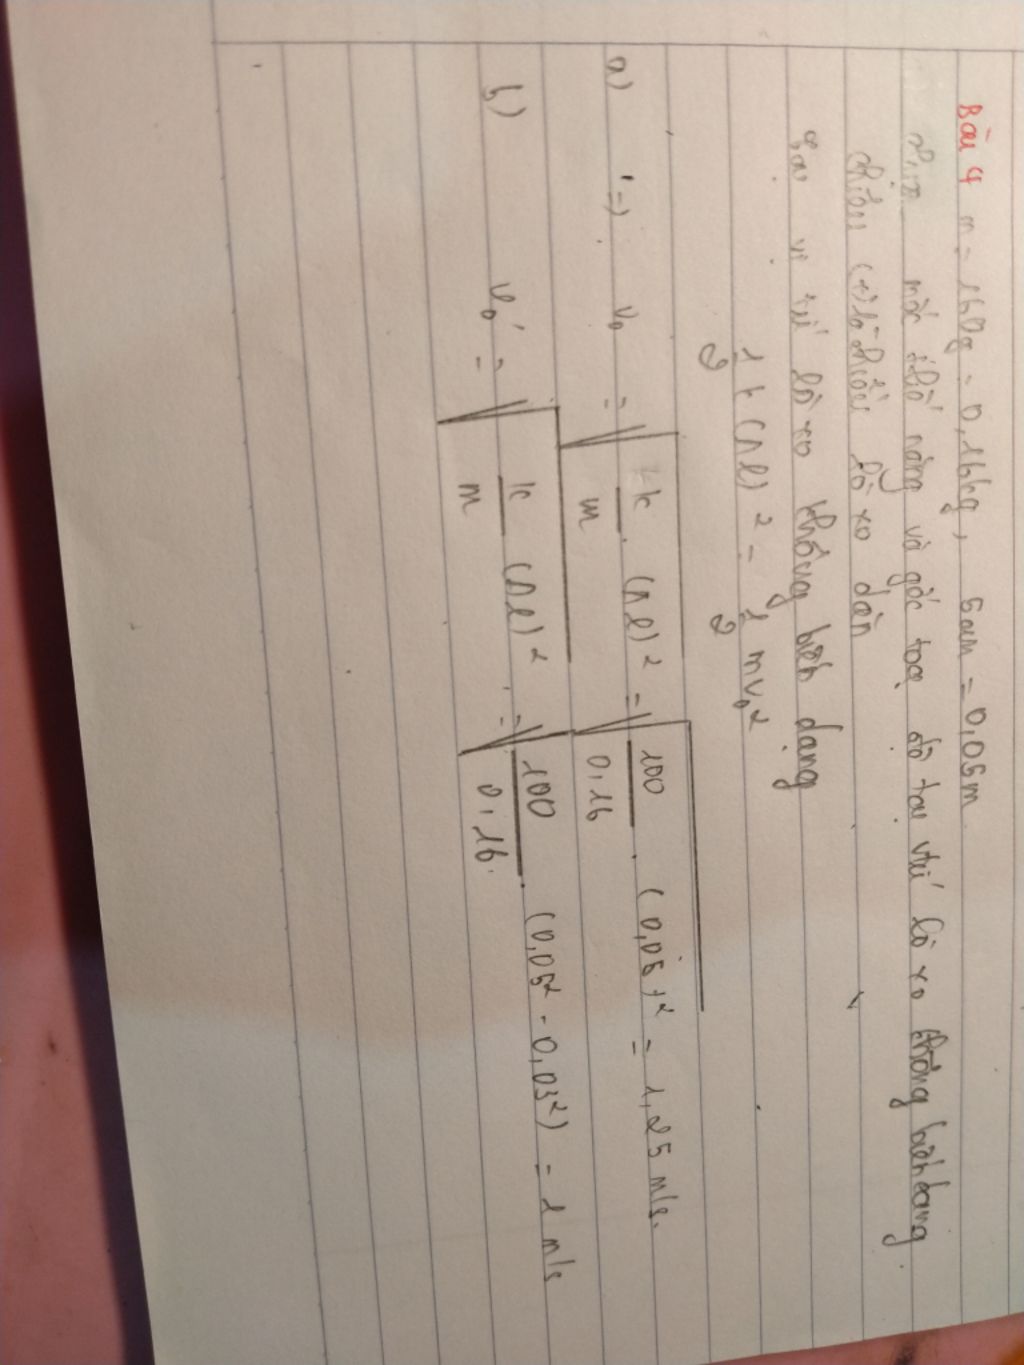 Bài 4 m = 160g = 0,16kg, 5cm = 0,05m
mốc thế năng và gốc toạ độ tại vtrí lò xo không biến dạng
chiều (+) là chiều lò xo dãn
Tại vị trí lò xo không biến dạng
1/2 k (Δl)² = 1/2 mv₀²
a) => v₀ = √(k/m . (Δl)²) = √(100/0,16 . (0,05)²) = 1,25 m/s.
b) v₀' = √(k/m (Δl)²) = √(100/0,16 . (0,05² - 0,03²)) = 1 m/s